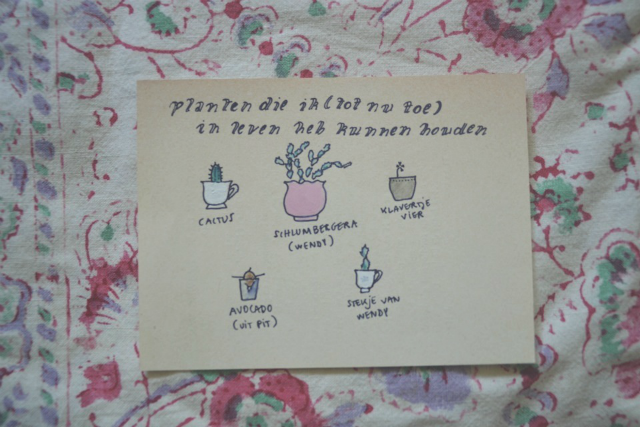 planten die ik (tot nu toe)
in leven heb kunnen houden
CACTUS
SCHLUMBERGERA
(WENDY)
KLAVERTJE
VIER
AVOCADO
(UIT PIT)
STEKJE VAN
WENDY